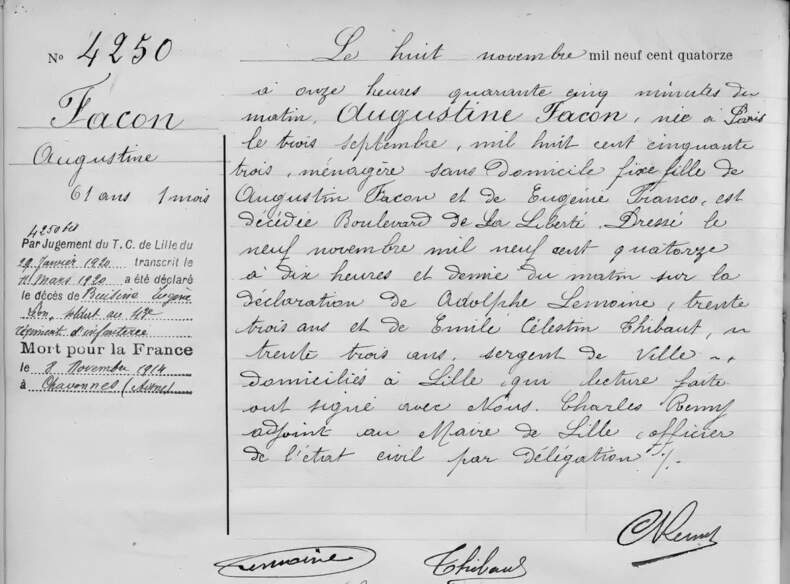 No 4250
Facon
Augustine
61 ans 1 mois
4250 bis
Par Jugement du T. C. de Lille du
29 Janvier 1920 transcrit le
Mars 1920 a été déclaré
le décès de Eugène
soldat au
régiment d'infanterie
Mort pour la France
le 8 Novembre 1914
à Chavonnes (Aisne)
Le huit novembre mil neuf cent quatorze
à onze heures quarante cinq minutes du
matin, Augustine Facon, née à Paris
le trois septembre, mil huit cent cinquante
trois, ménagère sans domicile fixe fille de
Augustin Facon et de Eugénie Franco, est
décédée Boulevard de La Liberté. Dressé le
neuf novembre mil neuf cent quatorze
à dix heures et demie du matin sur la
déclaration de Adolphe Lemoine, trente
trois ans et de Emile Célestin Thibaut,
trente trois ans, sergent de Ville
domiciliés à Lille, qui lecture faite
ont signé avec Nous. Charles Remy
adjoint au Maire de Lille, officier
de l'état civil par délégation ./.
CRemy
Lemoine Thibaut